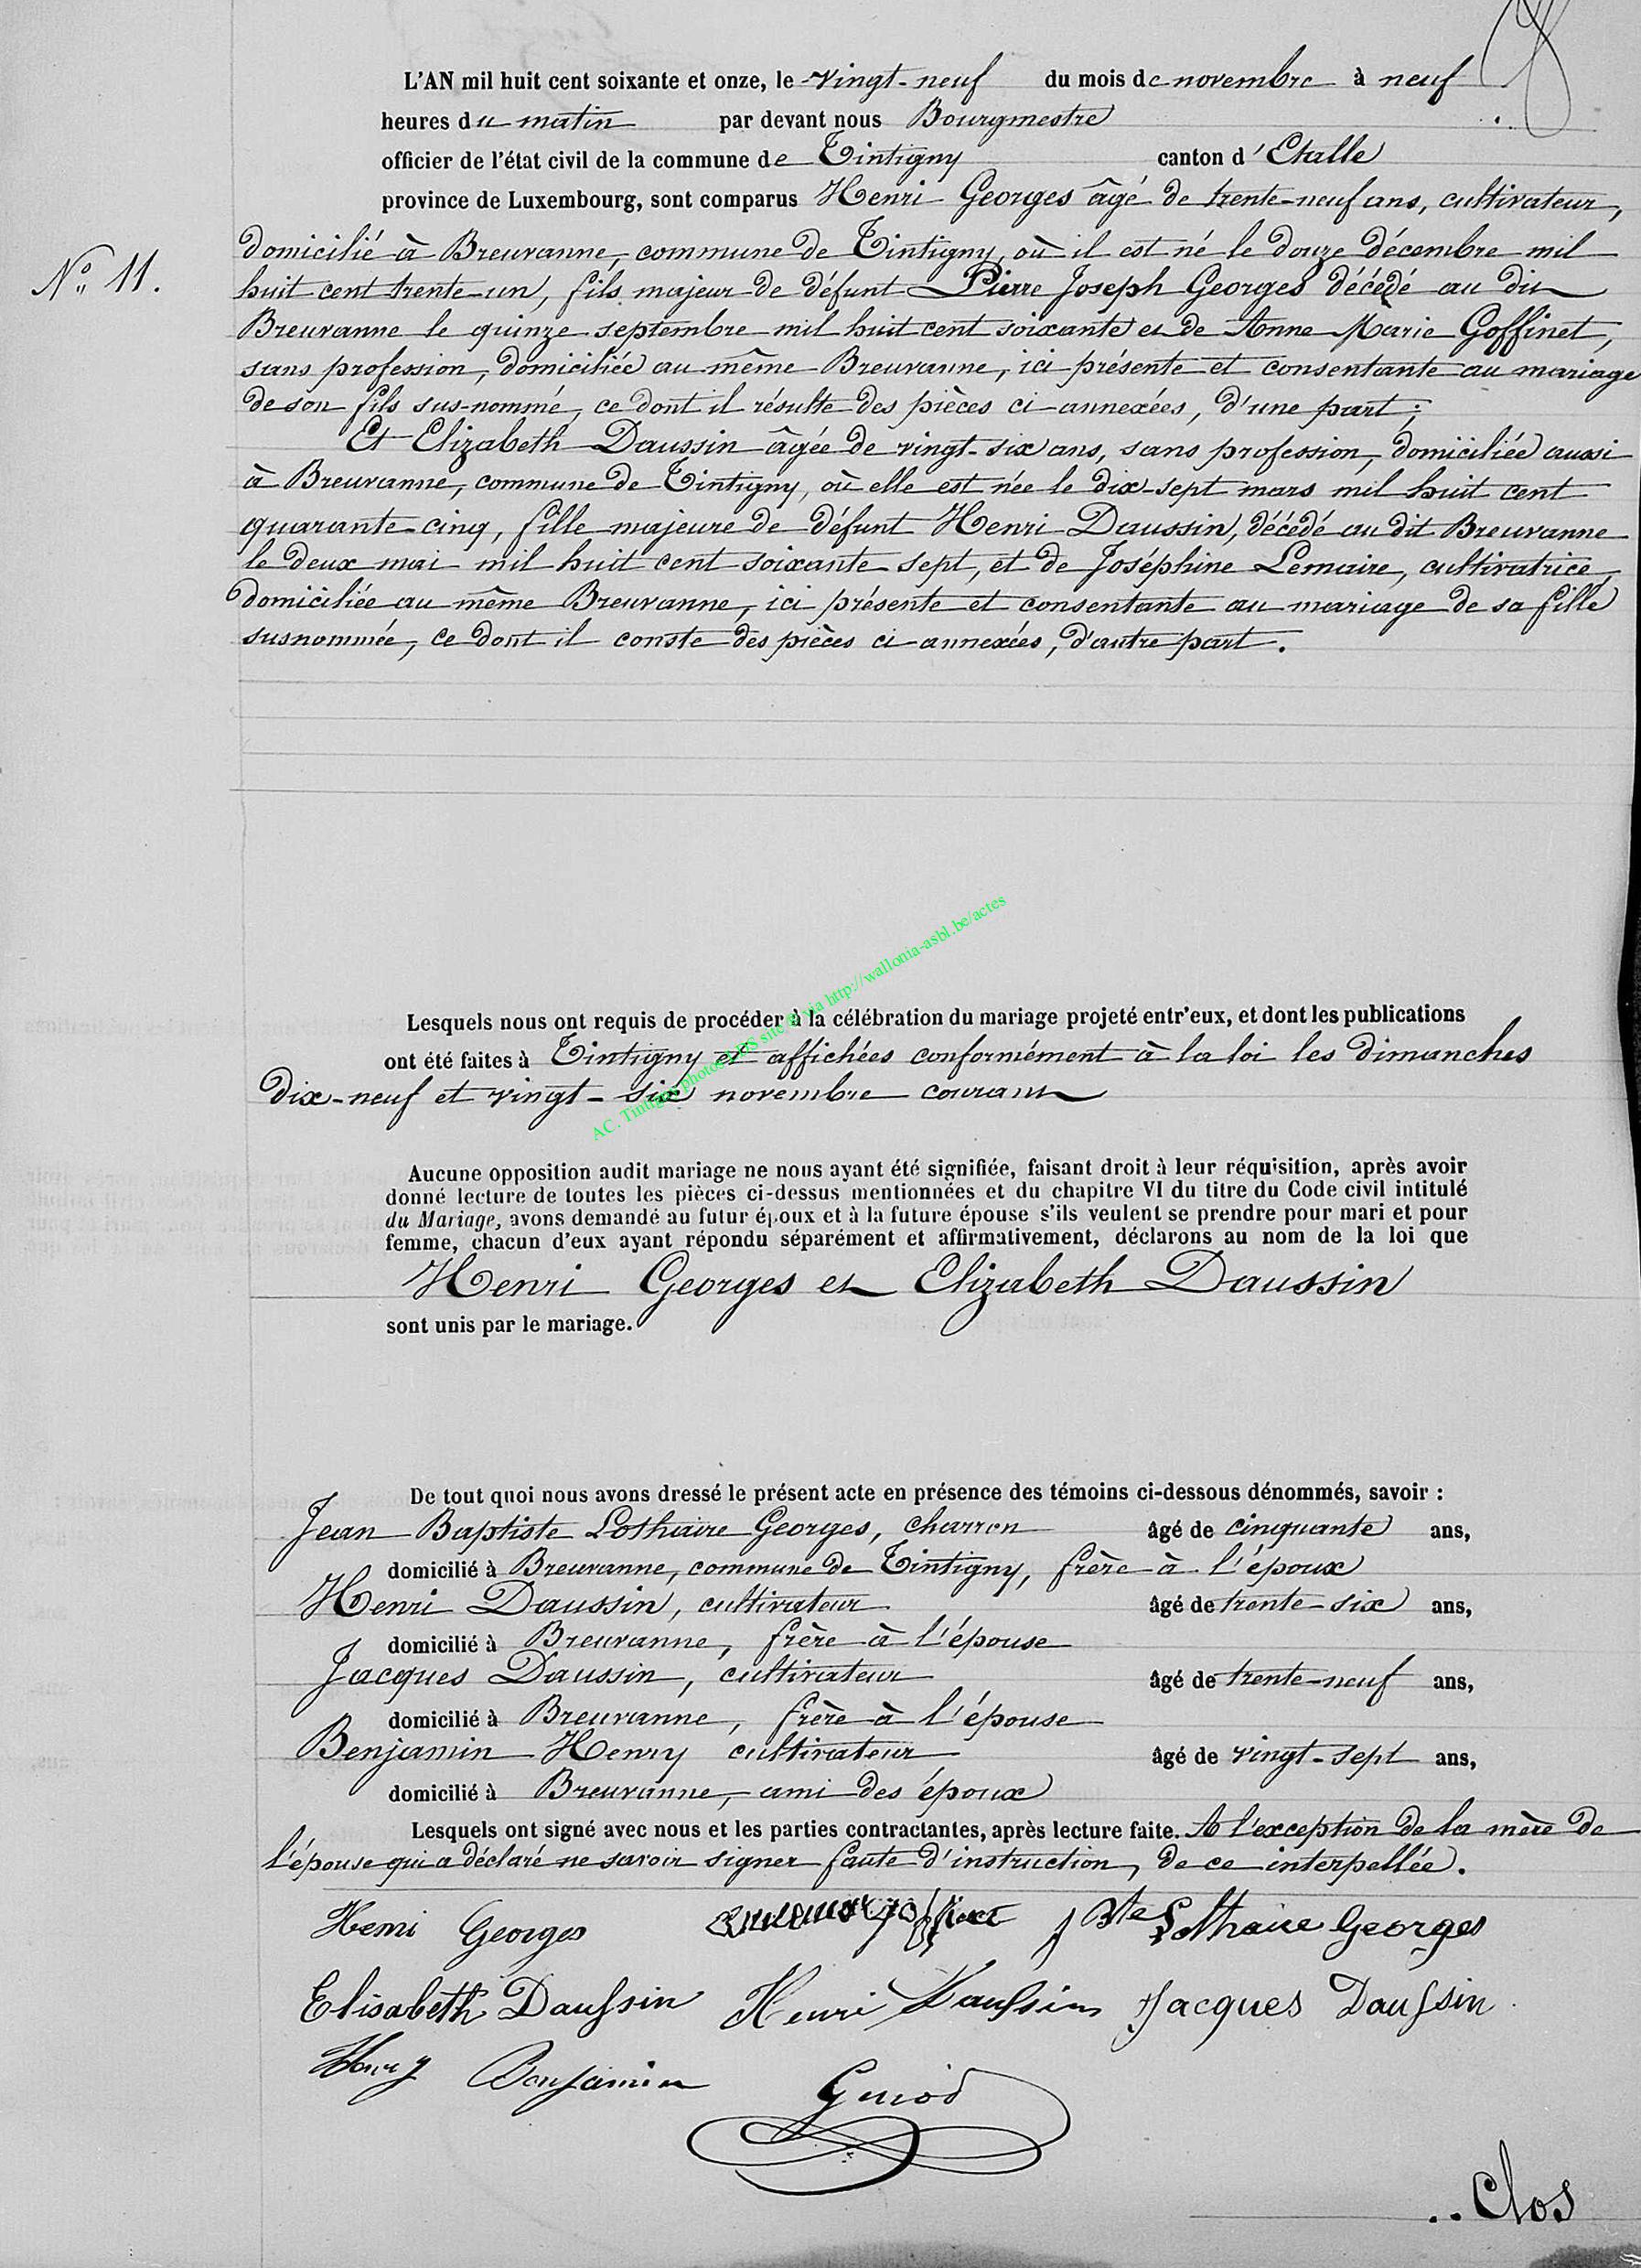 8
L'AN mil huit cent soixante et onze, le vingt-neuf du mois de novembre à neuf
heures du matin par devant nous Bourgmestre
officier de l'état civil de la commune de Tintigny canton d'Etalle
province de Luxembourg, sont comparus Henri Georges âgé de trente-neuf ans, cultivateur,
domicilié à Breuvanne, commune de Tintigny, où il est né le douze décembre mil
N° 11.
huit cent trente-un, fils majeur de défunt Pierre Joseph Georges décédé au dit
Breuvanne le quinze septembre mil huit cent soixante et de Anne Marie Goffinet,
sans profession, domiciliée au même Breuvanne, ici présente et consentante au mariage
de son fils sus-nommé, ce dont il résulte des pièces ci-annexées, d'une part;
Et Elizabeth Daussin âgée de vingt-six ans, sans profession, domiciliée aussi
à Breuvanne, commune de Tintigny, où elle est née le dix-sept mars mil huit cent
quarante-cinq, fille majeure de défunt Henri Daussin, décédé au dit Breuvanne
le deux mai mil huit cent soixante sept, et de Joséphine Lemaire, cultivatrice,
domiciliée au même Breuvanne, ici présente et consentante au mariage de sa fille
susnommée, ce dont il conste des pièces ci-annexées, d'autre part.
Lesquels nous ont requis de procéder à la célébration du mariage projeté entr'eux, et dont les publications
ont été faites à Tintigny et affichées conformément à la loi les dimanches
dix-neuf et vingt-six novembre courant
AC. Tintigny photos LDS site © via http://wallonia-asbl.be/actes
Aucune opposition audit mariage ne nous ayant été signifiée, faisant droit à leur réquisition, après avoir
donné lecture de toutes les pièces ci-dessus mentionnées et du chapitre VI du titre du Code civil intitulé
du Mariage, avons demandé au futur époux et à la future épouse s'ils veulent se prendre pour mari et pour
femme, chacun d'eux ayant répondu séparément et affirmativement, déclarons au nom de la loi que
Henri Georges et Elizabeth Daussin
sont unis par le mariage.
De tout quoi nous avons dressé le présent acte en présence des témoins ci-dessous dénommés, savoir :
Jean Baptiste Lothaire Georges, charron âgé de cinquante ans,
domicilié à Breuvanne, commune de Tintigny, frère à l'époux
Henri Daussin, cultivateur âgé de trente-six ans,
domicilié à Breuvanne, frère à l'épouse
Jacques Daussin, cultivateur âgé de trente-neuf ans,
domicilié à Breuvanne, frère à l'épouse
Benjamin Henry cultivateur âgé de vingt-sept ans,
domicilié à Breuvanne, ami des époux
Lesquels ont signé avec nous et les parties contractantes, après lecture faite. A l'exception de la mère de
l'épouse qui a déclaré ne savoir signer faute d'instruction, de ce interpellée.
Henri Georges goffinet J Bte Lothaire Georges
Elisabeth Daussin Henri Daussin Jacques Daussin
Henry Benjamin Guiod
.. Clos